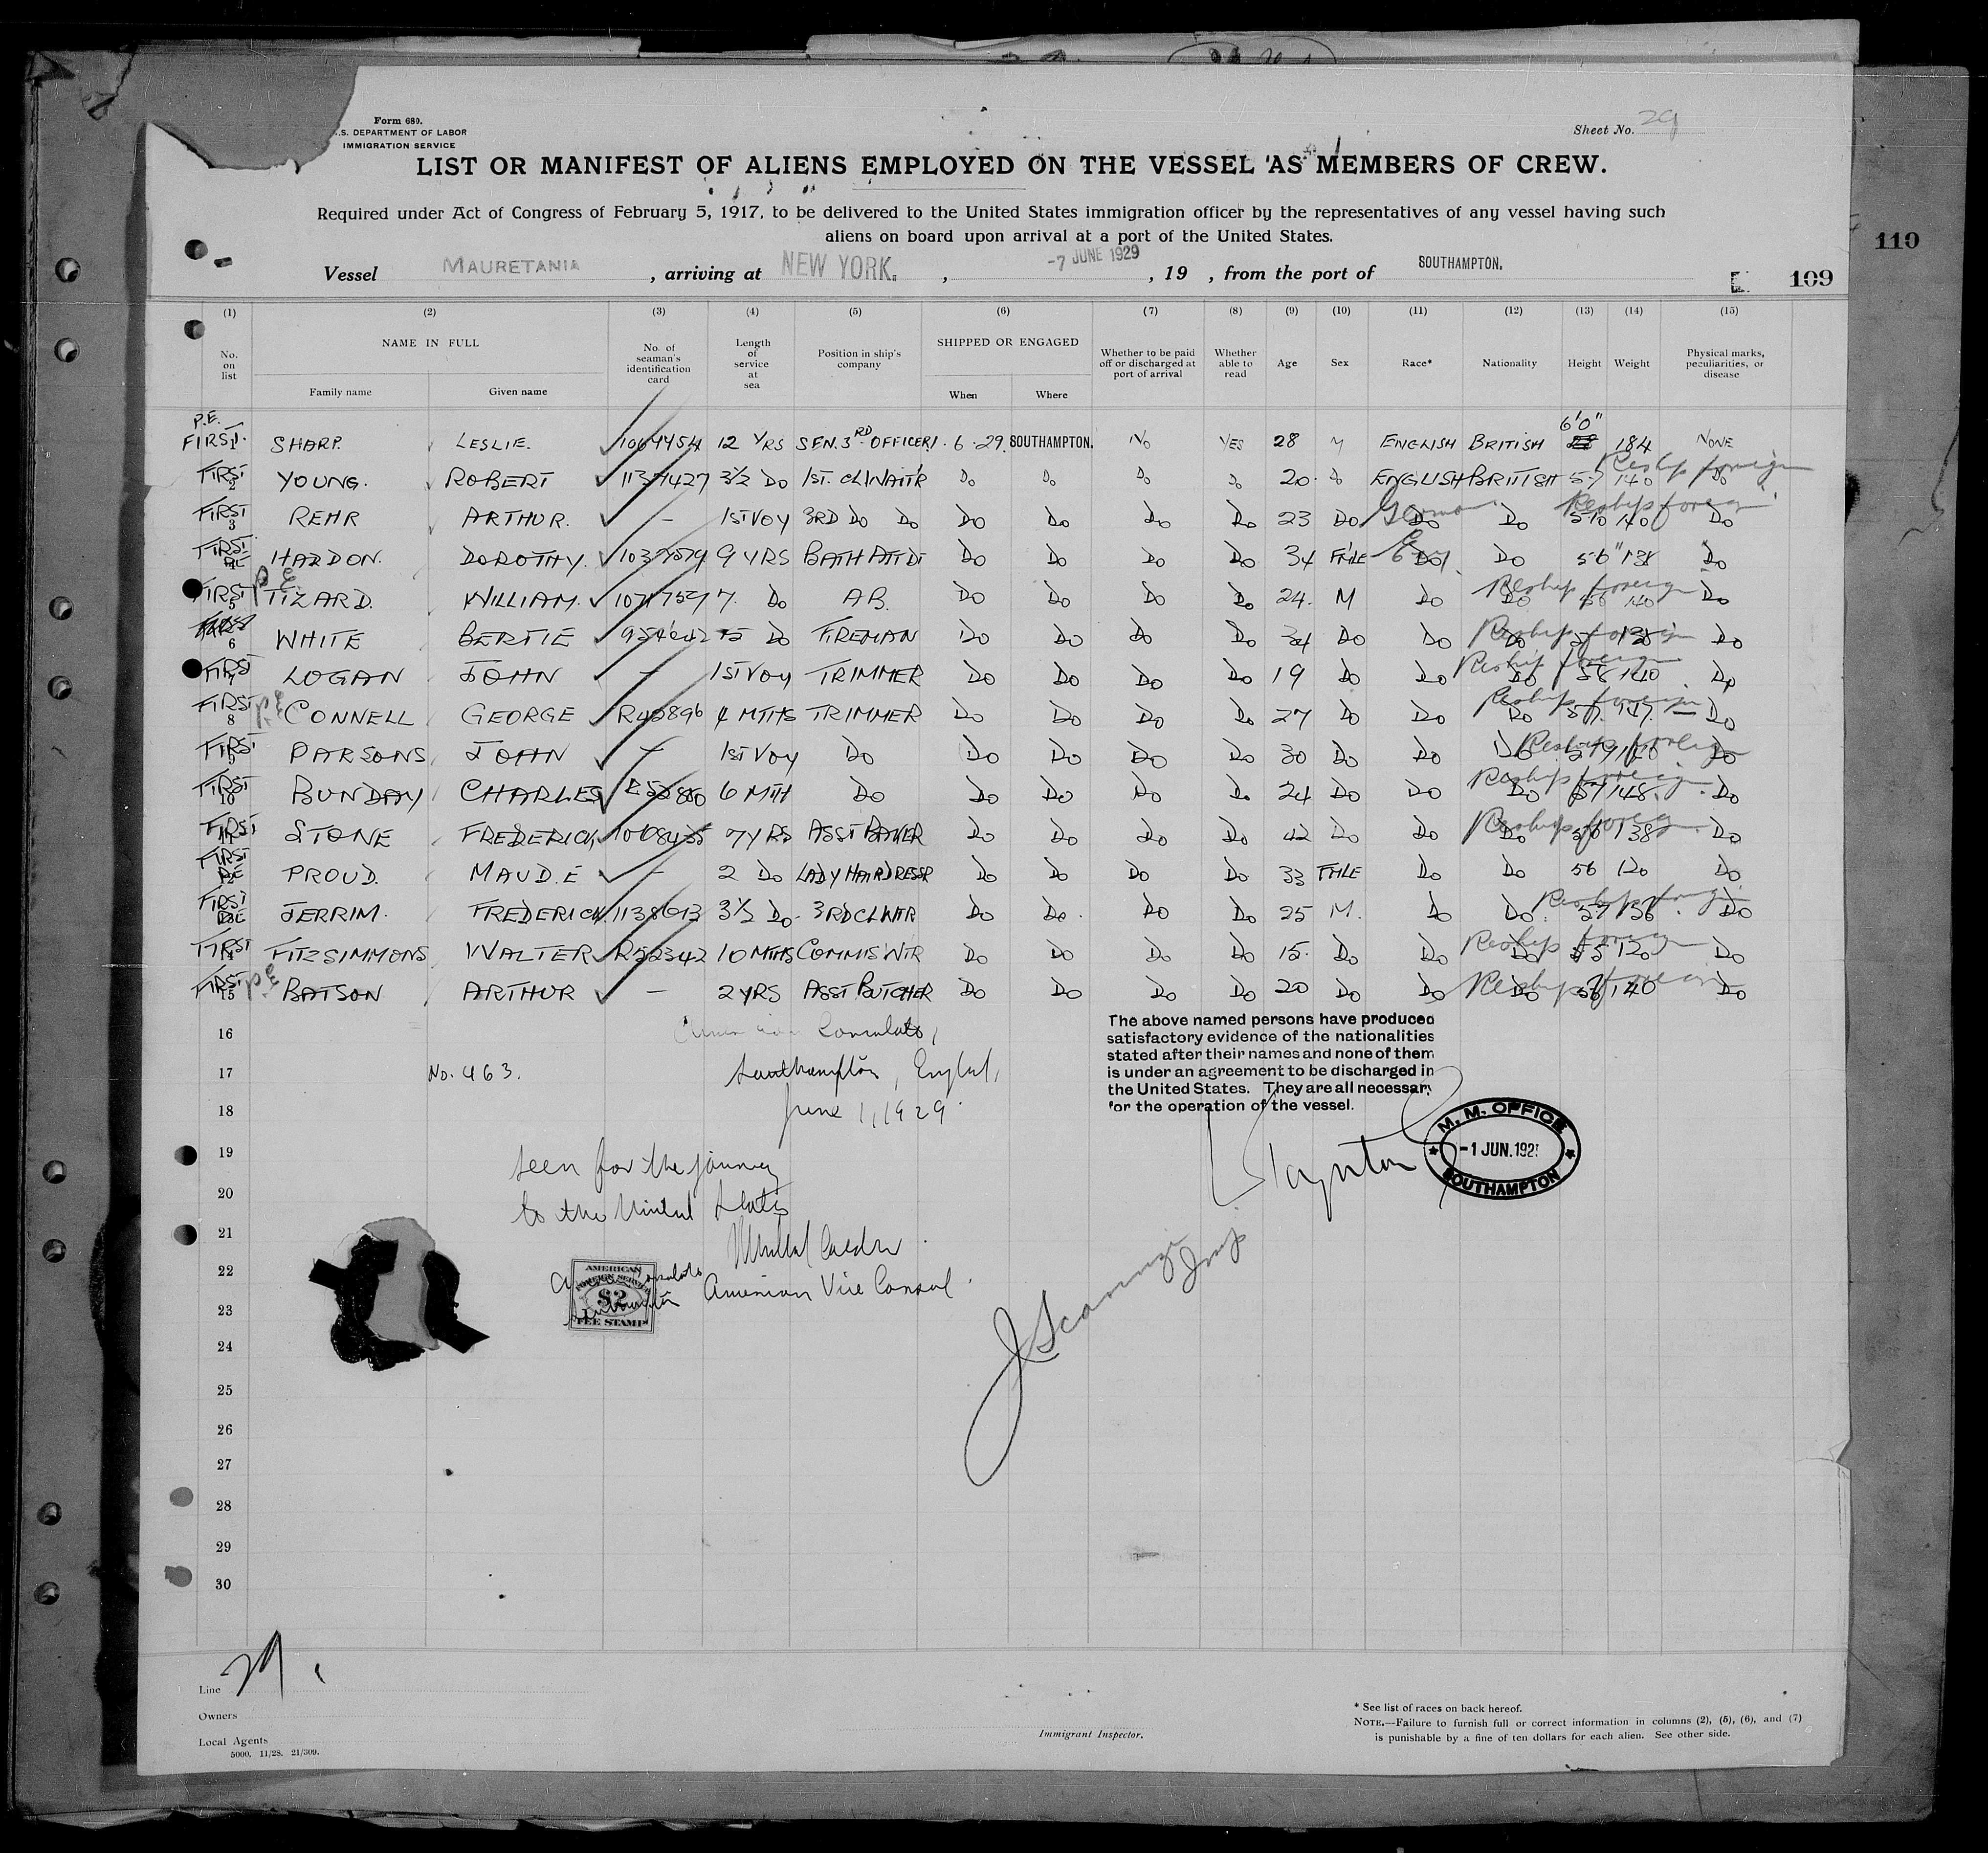 Form 680.
S. DEPARTMENT OF LABOR
IMMIGRATION SERVICE
Sheet No. 29
LIST OR MANIFEST OF ALIENS EMPLOYED ON THE VESSEL AS MEMBERS OF CREW.
Required under Act of Congress of February 5, 1917, to be delivered to the United States immigration officer by the representatives of any vessel having such
aliens on board upon arrival at a port of the United States.
110
Vessel MAURETANIA , arriving at NEW YORK. , -7 JUNE 1929 , 19 , from the port of SOUTHAMPTON.
109
(1) (2) (3) (4) (5) (6) (7) (8) (9) (10) (11) (12) (13) (14) (15)
No. on list NAME IN FULL Family name Given name No. of seaman's identification card Length of service at sea Position in ship's company SHIPPED OR ENGAGED When Where Whether to be paid off or discharged at port of arrival Whether able to read Age Sex Race* Nationality Height Weight Physical marks, peculiarities, or disease
P.E. 6'0"
FIRST 1 SHARP. LESLIE. 1064454 12 YRS SEN. 3RD OFFICER 1.6.29. SOUTHAMPTON. No YES 28 M ENGLISH BRITISH 184 NONE
FIRST 2 YOUNG. ROBERT 1137427 3½ Do 1ST. CL WAITR Do Do Do Do 20 Do ENGLISH BRITISH 5-7 140 Do Reship foreign
FIRST 3 REHR ARTHUR. - 1ST VOY 3RD Do Do Do Do Do Do 23 Do German Do Do 5'10 140 Do Reship foreign
FIRST 4 HARDON. DOROTHY. 1037579 9 YRS BATH ATTDT Do Do Do Do 34 FMLE Do Do 5'6" 138 Do
FIRST 5 P.E. TIZARD. WILLIAM. 1071759 7 Do A.B. Do Do Do Do 24. M Do Do 140 Do Reship foreign
FIRST 6 WHITE BERTIE 15 Do FIREMAN Do Do Do Do 34 Do Do Do 130 Do Reship foreign
FIRST 7 LOGAN JOHN - 1ST VOY TRIMMER Do Do Do Do 19 Do Do Do 58 140 Do Reship foreign
FIRST 8 P.E. CONNELL GEORGE R42896 4 MTHS TRIMMER Do Do Do Do 27 Do Do Do 57 147 Do Reship foreign
FIRST 9 PARSONS JOHN - 1ST VOY Do Do Do Do Do 30 Do Do Do Do Reship foreign
FIRST 10 BUNDAY CHARLES 6 MTH Do Do Do Do Do 24 Do Do Do 57 148 Do Reship foreign
FIRST 11 STONE FREDERICK 1008435 7 YRS ASST BAKER Do Do Do Do 42 Do Do Do 56 138 Do Reship foreign
FIRST 12 PROUD. MAUD. E - 2 Do LADY HAIRDRESSR Do Do Do Do 33 FMLE Do Do 56 120 Do
FIRST 13 JERRIM. FREDERICK 1138613 3½ Do 3RD CL WTR Do Do Do Do 25 M. Do Do 57 136 Do Reship foreign
FIRST 14 FITZSIMMONS WALTER R52342 10 MTHS COMMIS WTR Do Do Do Do 15. Do Do Do 55 120 Do Reship foreign
FIRST 15 P.E. BATSON ARTHUR - 2 YRS ASST BUTCHER Do Do Do Do 20 Do Do Do 56 140 Do Reship foreign
16 American Consulate,
17 No. 463. Southampton, England,
18 June 1, 1929.
The above named persons have produced
satisfactory evidence of the nationalities
stated after their names and none of them
is under an agreement to be discharged in
the United States. They are all necessary
for the operation of the vessel.
M. M. OFFICE
-1 JUN. 192
SOUTHAMPTON
19 Seen for the journey
20 to the United States
21
22 American Vice Consul.
AMERICAN
FOREIGN SERVICE
$2
FEE STAMP
23
24
25
26
27
28
29
30
Line
Owners
Local Agents
5000. 11/28. 21/309.
Immigrant Inspector.
* See list of races on back hereof.
NOTE.—Failure to furnish full or correct information in columns (2), (5), (6), and (7)
is punishable by a fine of ten dollars for each alien. See other side.